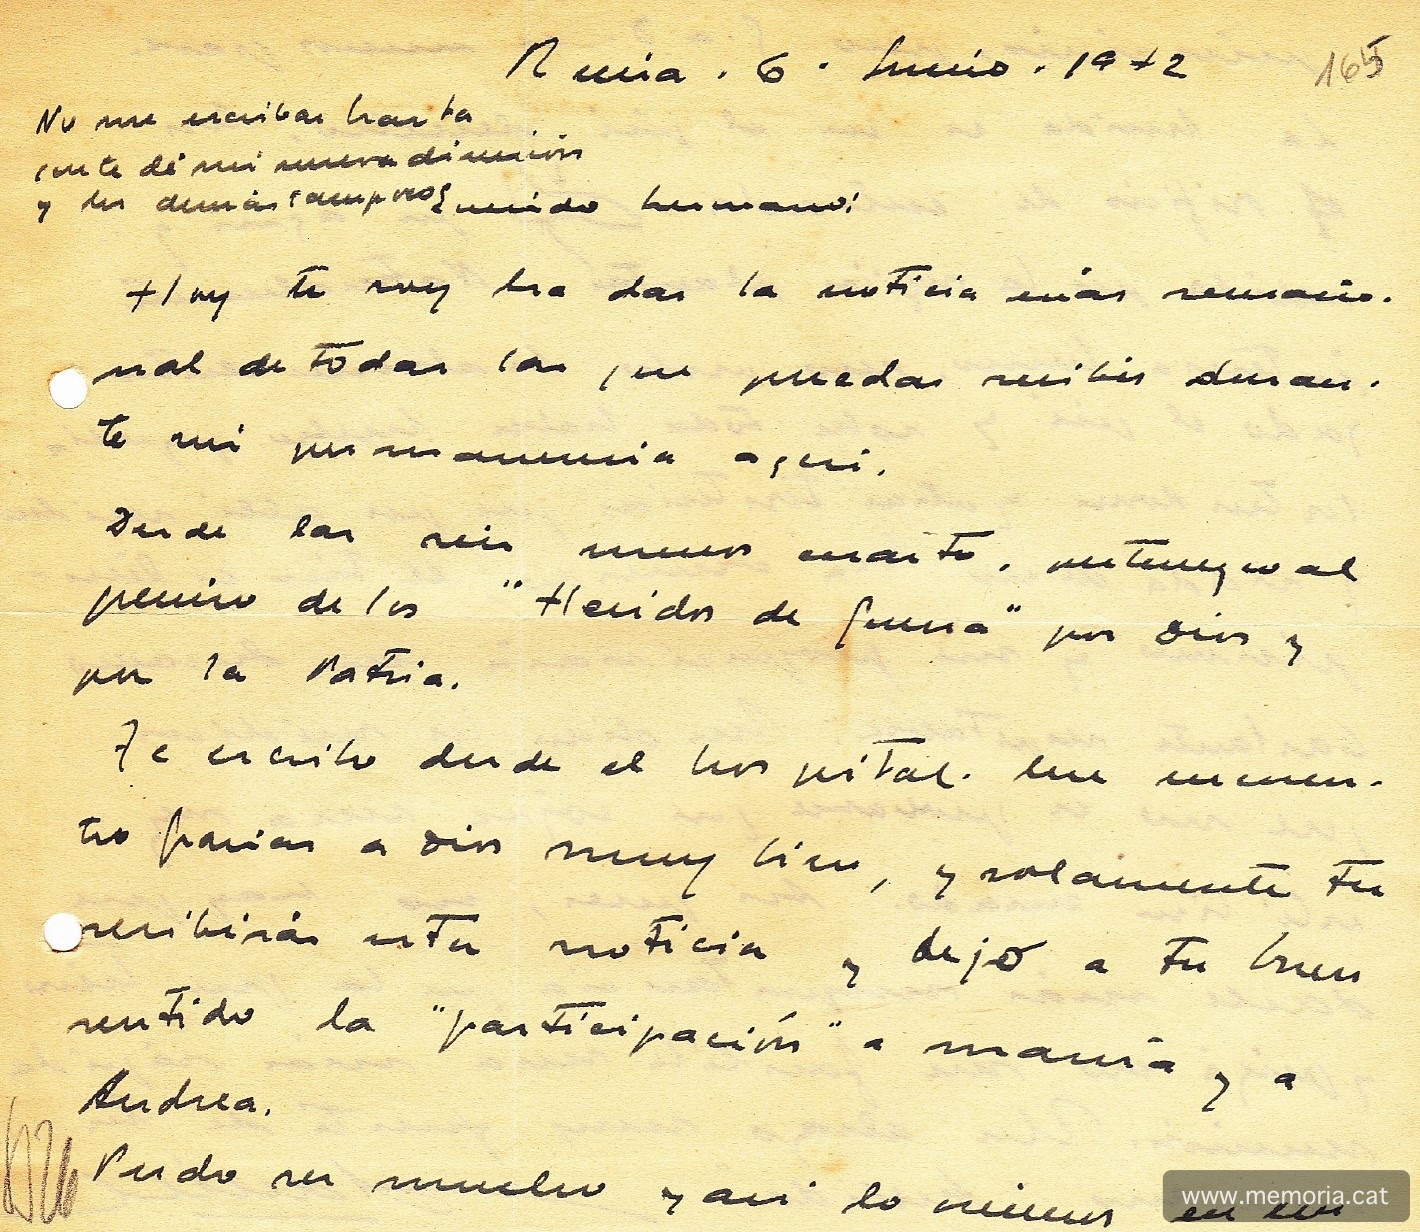 Rusia . 6 . Junio . 1942
165
No me escribas hasta
que te dé mi nueva dirección
y los demás tampoco
Querido hermano:
Hoy te voy ha dar la noticia más sensacio-
nal de todas las que puedas recibir duran-
te mi permanencia aqui.
Desde las seis menos cuarto, pertenezco al
gremio de los "Heridos de guerra" por Dios y
por la Patria.
Te escribo desde el hospital. Me encuen-
tro gracias a Dios muy bien, y solamente tu
recibirás esta noticia y dejo a tu buen
sentido la "participación" a mamá y a
Andrea.
Pudo ser mucho y asi lo vimos en los
www.memoria.cat